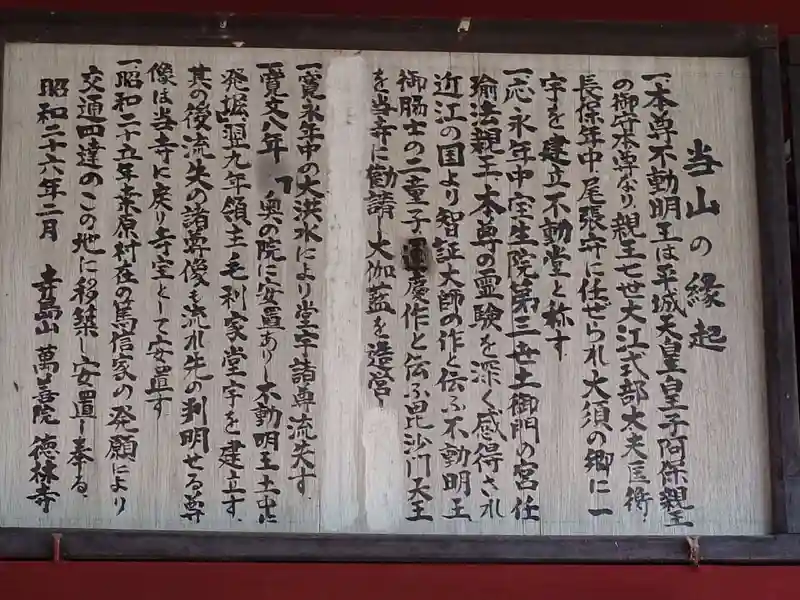 当山の縁起
一、本尊不動明王は平城天皇皇子阿保親王
の御守本尊なり、親王七世大江式部太夫匡衡、
長保年中、尾張守に任ぜられ大須の郷に一
宇を建立不動堂と称す
一、応永年中宝生院第三世土御門の宮任
瑜法親王、本尊の霊験を深く感得され
近江の国より智証大師の作と伝ふ不動明王
御脇士の二童子 慶作と伝ふ毘沙門天王
を当寺に勧請し大伽藍を造営し
一、寛永年中の大洪水により堂宇諸尊流失す、
一、寛文八年 奥の院に安置ありし不動明王土中に
発掘翌九年領主毛利家堂宇を建立す、
其の後流失の諸尊像も流れ先の判明せる尊
像は当寺に戻り寺宝として安置す
一、昭和二十五年桑原村在の篤信家の発願により
交通四達のこの地に移築し安置し奉る、
昭和二十六年二月 寺島山 萬善院 徳林寺